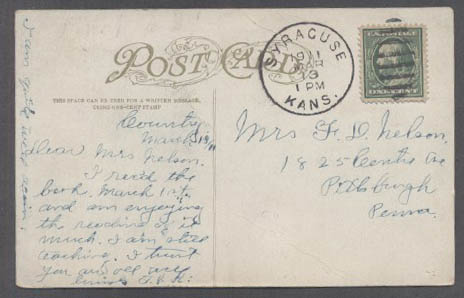 POST CARD
THIS SPACE CAN BE USED FOR A WRITTEN MESSAGE,
USING ONE-CENT STAMP
SYRACUSE
MAR
13
1 PM
KANS.
Country
March 13/11
Dear Mrs Nelson.
I recd the
book. March 1st.
and am enjoying
the reading of it
much. I am still
teaching. I trust
you and all are
Mrs F. D. Nelson.
1825 Centre Ave
Pittsburgh
Penna.